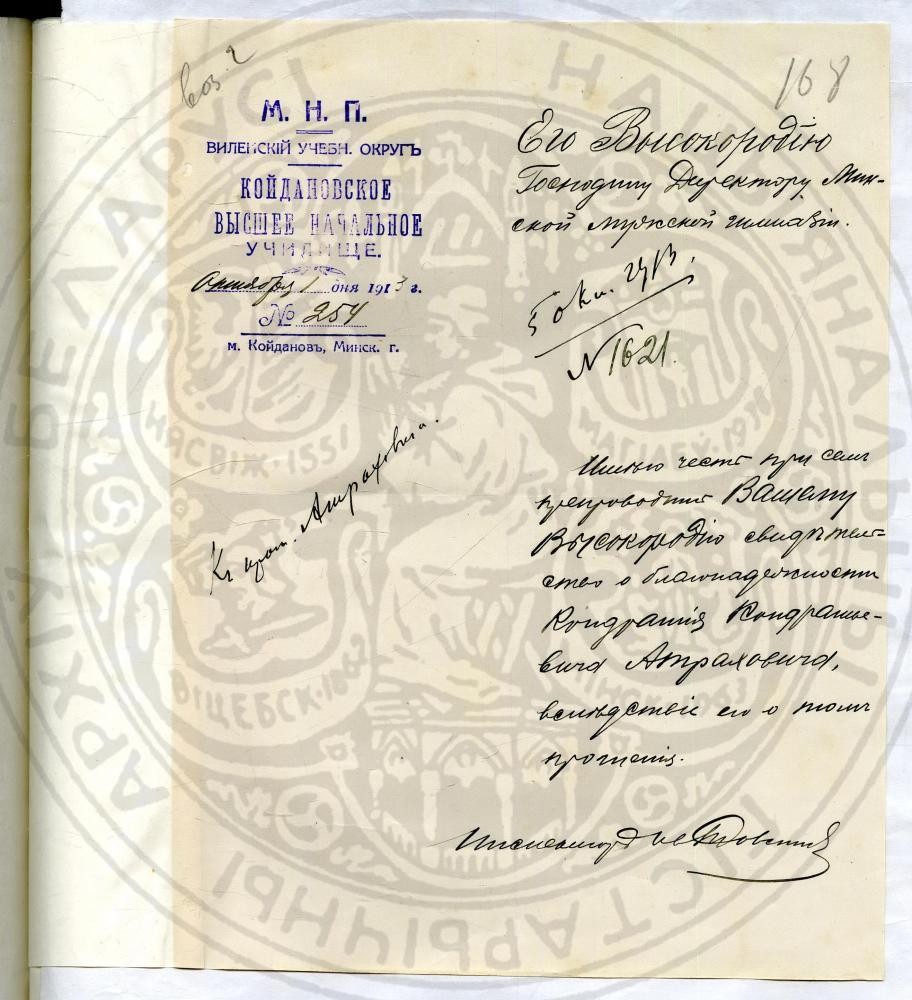 168
М. Н. П.
ВИЛЕНСКІЙ УЧЕБН. ОКРУГЪ
КОЙДАНОВСКОЕ
ВЫСШЕЕ НАЧАЛЬНОЕ
УЧИЛИЩЕ.
Октября 1 дня 1913 г.
№ 254
м. Койдановъ, Минск. г.
Его Высокородію
Господину Директору Мин-
ской мужской гимназіи.
5 окт.
N 1621.
Къ прот. Атраховича.
Имѣю честь при семъ
препроводить Вашему
Высокородію свидѣтель-
ство о благонадежности
Кондратія Кондратье-
вича Атраховича,
вслѣдствіе его о томъ
прошенія.
Инспекторъ
НАЦЫЯНАЛЬНЫ
ГІСТАРЫЧНЫ
АРХІЎ БЕЛАРУСІ
НЯСВІЖ·1551
МАГІЛЁЎ·1930
ВІЦЕБСК·1862